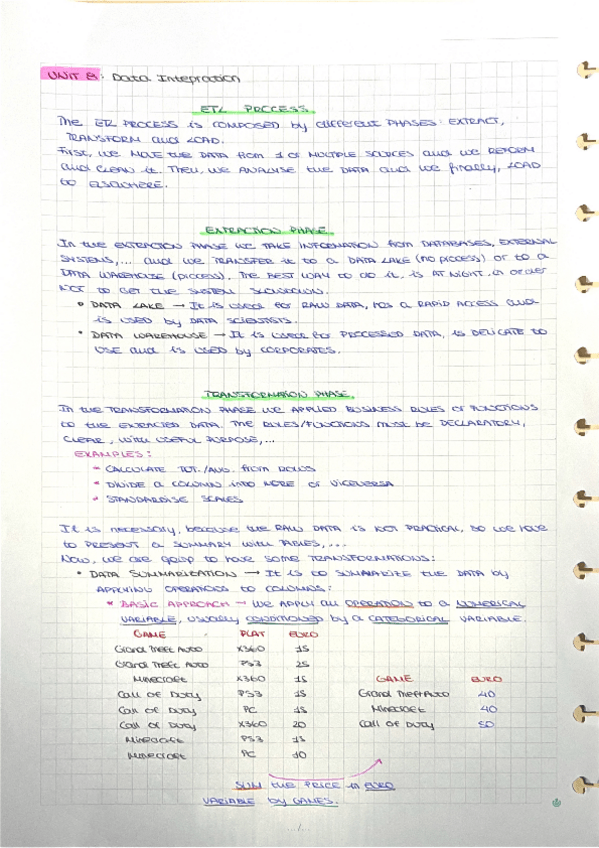 UNIT 8: Data Integration
ETL PROCESS
The ETL PROCESS is COMPOSED by different PHASES: EXTRACT,
TRANSFORM and LOAD.
First, we MOVE THE DATA from 1 or MULTIPLE SOURCES and we REFORM
and CLEAN it. Then, we ANALYSE the DATA and we finally, LOAD
to ELSEWHERE.
EXTRACTION PHASE
In the EXTRACTION PHASE WE TAKE INFORMATION from DATABASES, EXTERNAL
SYSTEMS,... and we TRANSFER it to a DATA LAKE (no process) or to a
DATA WAREHOUSE (process). The BEST WAY to do it, is AT NIGHT, in order
NOT to GET the SYSTEM SLOWDOWN.
• DATA LAKE → It is used for RAW DATA, has a RAPID ACCESS and
is USED by DATA SCIENTISTS.
• DATA WAREHOUSE → It is used for PROCESSED DATA, is DELICATE to
USE and is USED by CORPORATES.
TRANSFORMATION PHASE
In the TRANSFORMATION PHASE we APPLIED BUSINESS RULES or FUNCTIONS
to the EXTRACTED DATA. The RULES/FUNCTIONS MUST be DECLARATORY,
CLEAR, with USEFUL PURPOSE,...
EXAMPLES:
* CALCULATE TOT./AVG. from ROWS
* DIVIDE a COLUMN into MORE or VICEVERSA
* STANDARDISE SCALES
It is necessary, because the RAW DATA is NOT PRACTICAL, so we have
to PRESENT a SUMMARY with TABLES,...
Now, we are going to have some TRANSFORMATIONS:
• DATA SUMMARIZATION → It is to SUMMARIZE the DATA by
APPLYING OPERATIONS to COLUMNS:
* BASIC APPROACH → we APPLY an OPERATION to a NUMERICAL
VARIABLE, USUALLY CONDITIONED by a CATEGORICAL VARIABLE.
GAME PLAT EURO
Grand Theft Auto X360 15
Grand Theft Auto PS3 25
Minecraft X360 15
Call of Duty PS3 15
Call of Duty PC 15
Call of Duty X360 20
Minecraft PS3 15
Minecraft PC 10
GAME EURO
Grand Theft Auto 40
Minecraft 40
Call of Duty 50
SUM the PRICE in EURO
VARIABLE by GAMES.
.../...